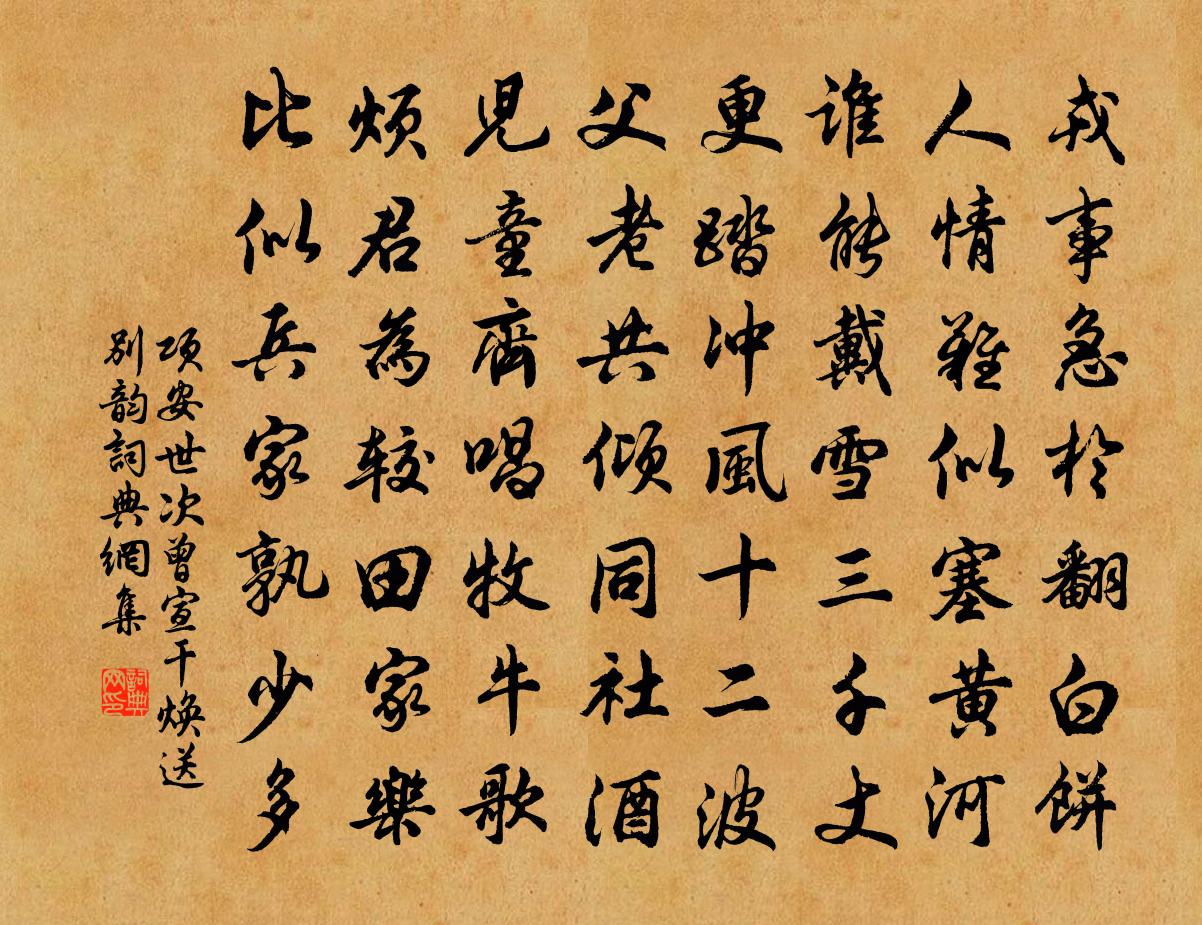 戎事急於翻白餅
人情難似塞黃河
誰能戴雪三千丈
更踏沖風十二波
父老共傾同社酒
兒童齊唱牧牛歌
煩君為較田家樂
比似兵家孰少多
項安世次曾宣干煥送
別韵詞典網集
詞典网印